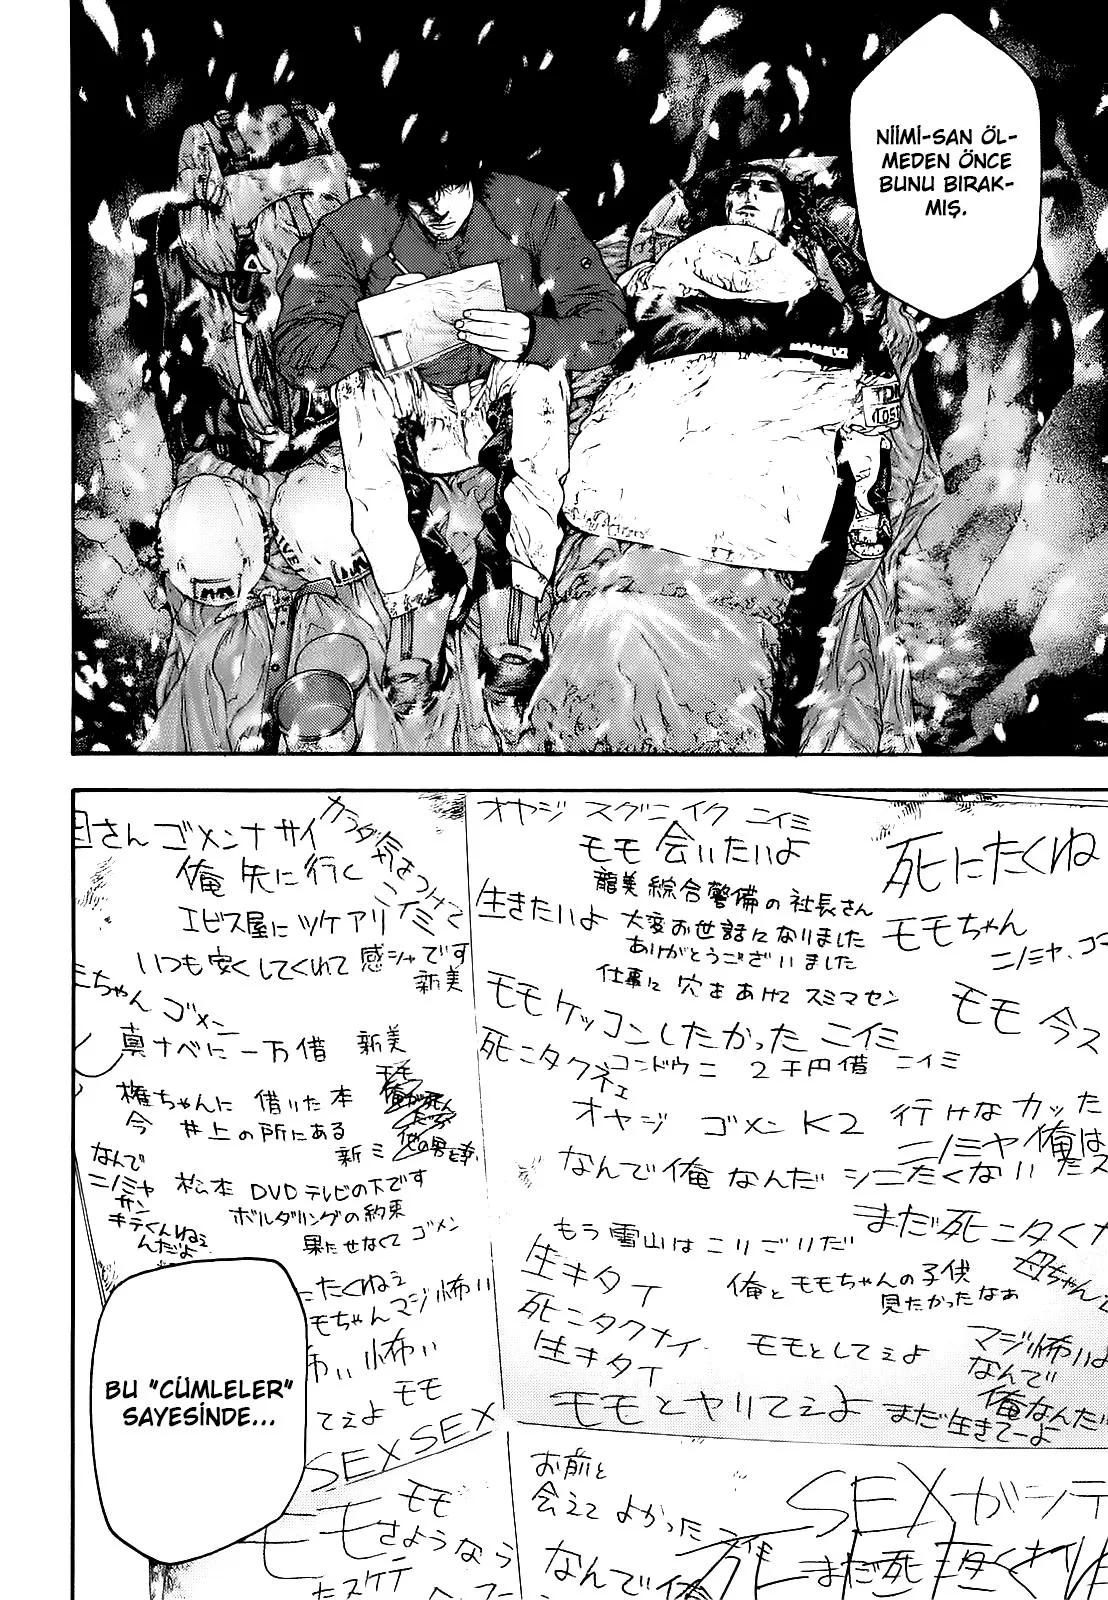 NİİMİ-SAN ÖL-
MEDEN ÖNCE
BUNU BIRAK-
MIŞ.
オヤジ スグニイク ニイミ
モモ 会いたいよ
死にたくね
龍美綜合警備の社長さん
大変お世話になりました
ありがとうございました
仕事に穴をあけてスミマセン
生きたいよ
モモちゃん
ニノミヤ、コ
モモ 今ス
モモケッコンしたかった ニイミ
死ニタクネェ
コンドウニ 2千円借 ニイミ
オヤジ ゴメン K2 行けなカッた
ニノミヤ 俺は
なんで俺なんだ シニたくない たス
まだ死ニタくナ
もう雪山はこりごりだ
生キタイ
死ニタクナイ
生キタイ
俺とモモちゃんの子供
見たかったなぁ
母ちゃん
モモとしてぇよ
マジ怖いよ
なんで
俺なんだ
まだ生きてーよ
モモとヤりてぇよ
さん ゴメンナサイ
カラダ気をつけて
ニイミ
俺 先に行く
エビス屋に ツケアリ
いつも安くしてくれて 感シャです
新美
ミちゃん ゴメン
真ナベに 一万借 新美
権ちゃんに 借りた本
今 井上の所にある
新ミ
モモ
俺が死ん
だら
他の男と
なんで
ニノミヤ
サン
キテくんねぇ
んだよ
松本 DVD テレビの下です
ボルダリングの約束
果たせなくて ゴメン
たくねぇ
モちゃん マジ怖い
怖い 怖い
モモ
てぇよ
SEX SEX
モモ
モモ
さようなら
たスケテ
お前と
会えてよかった
なんで俺
SEXがシテ
まだ死
BU "CÜMLELER"
SAYESİNDE...